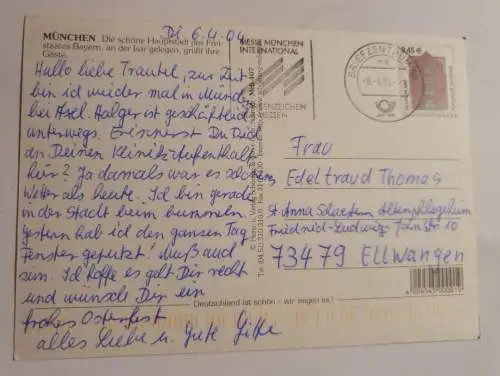 MÜNCHEN Die schöne Hauptstadt des Frei
staates Bayern, an der Isar gelegen, grüßt ihre
Gäste.
Di, 6.4.04
Hallo liebe Trautel, zur Zeit
bin ich wieder mal in München
bei Axel. Holger ist geschäftlich
unterwegs. Erinnerst Du Dich
an Deinen Klinikaufenthalt
hier? Ja damals war es schöneres
Wetter als heute. Ich bin gerade
in der Stadt beim bummeln.
Gestern hab ich den ganzen Tag
Fenster geputzt! Muß auch
sein. Ich hoffe es geht Dir recht
und wünsch Dir ein
frohes Osterfest
alles Liebe u. Gute
MESSE MÜNCHEN
INTERNATIONAL
BRIEFZENTRUM
0,45 €
Frau
Edeltraud Thomas
St. Anna Schwestern Altenpflegeheim
Friedrich-Ludwig-Jahn Str. 10
73479 Ellwangen
Deutschland ist schön – wir zeigen es!